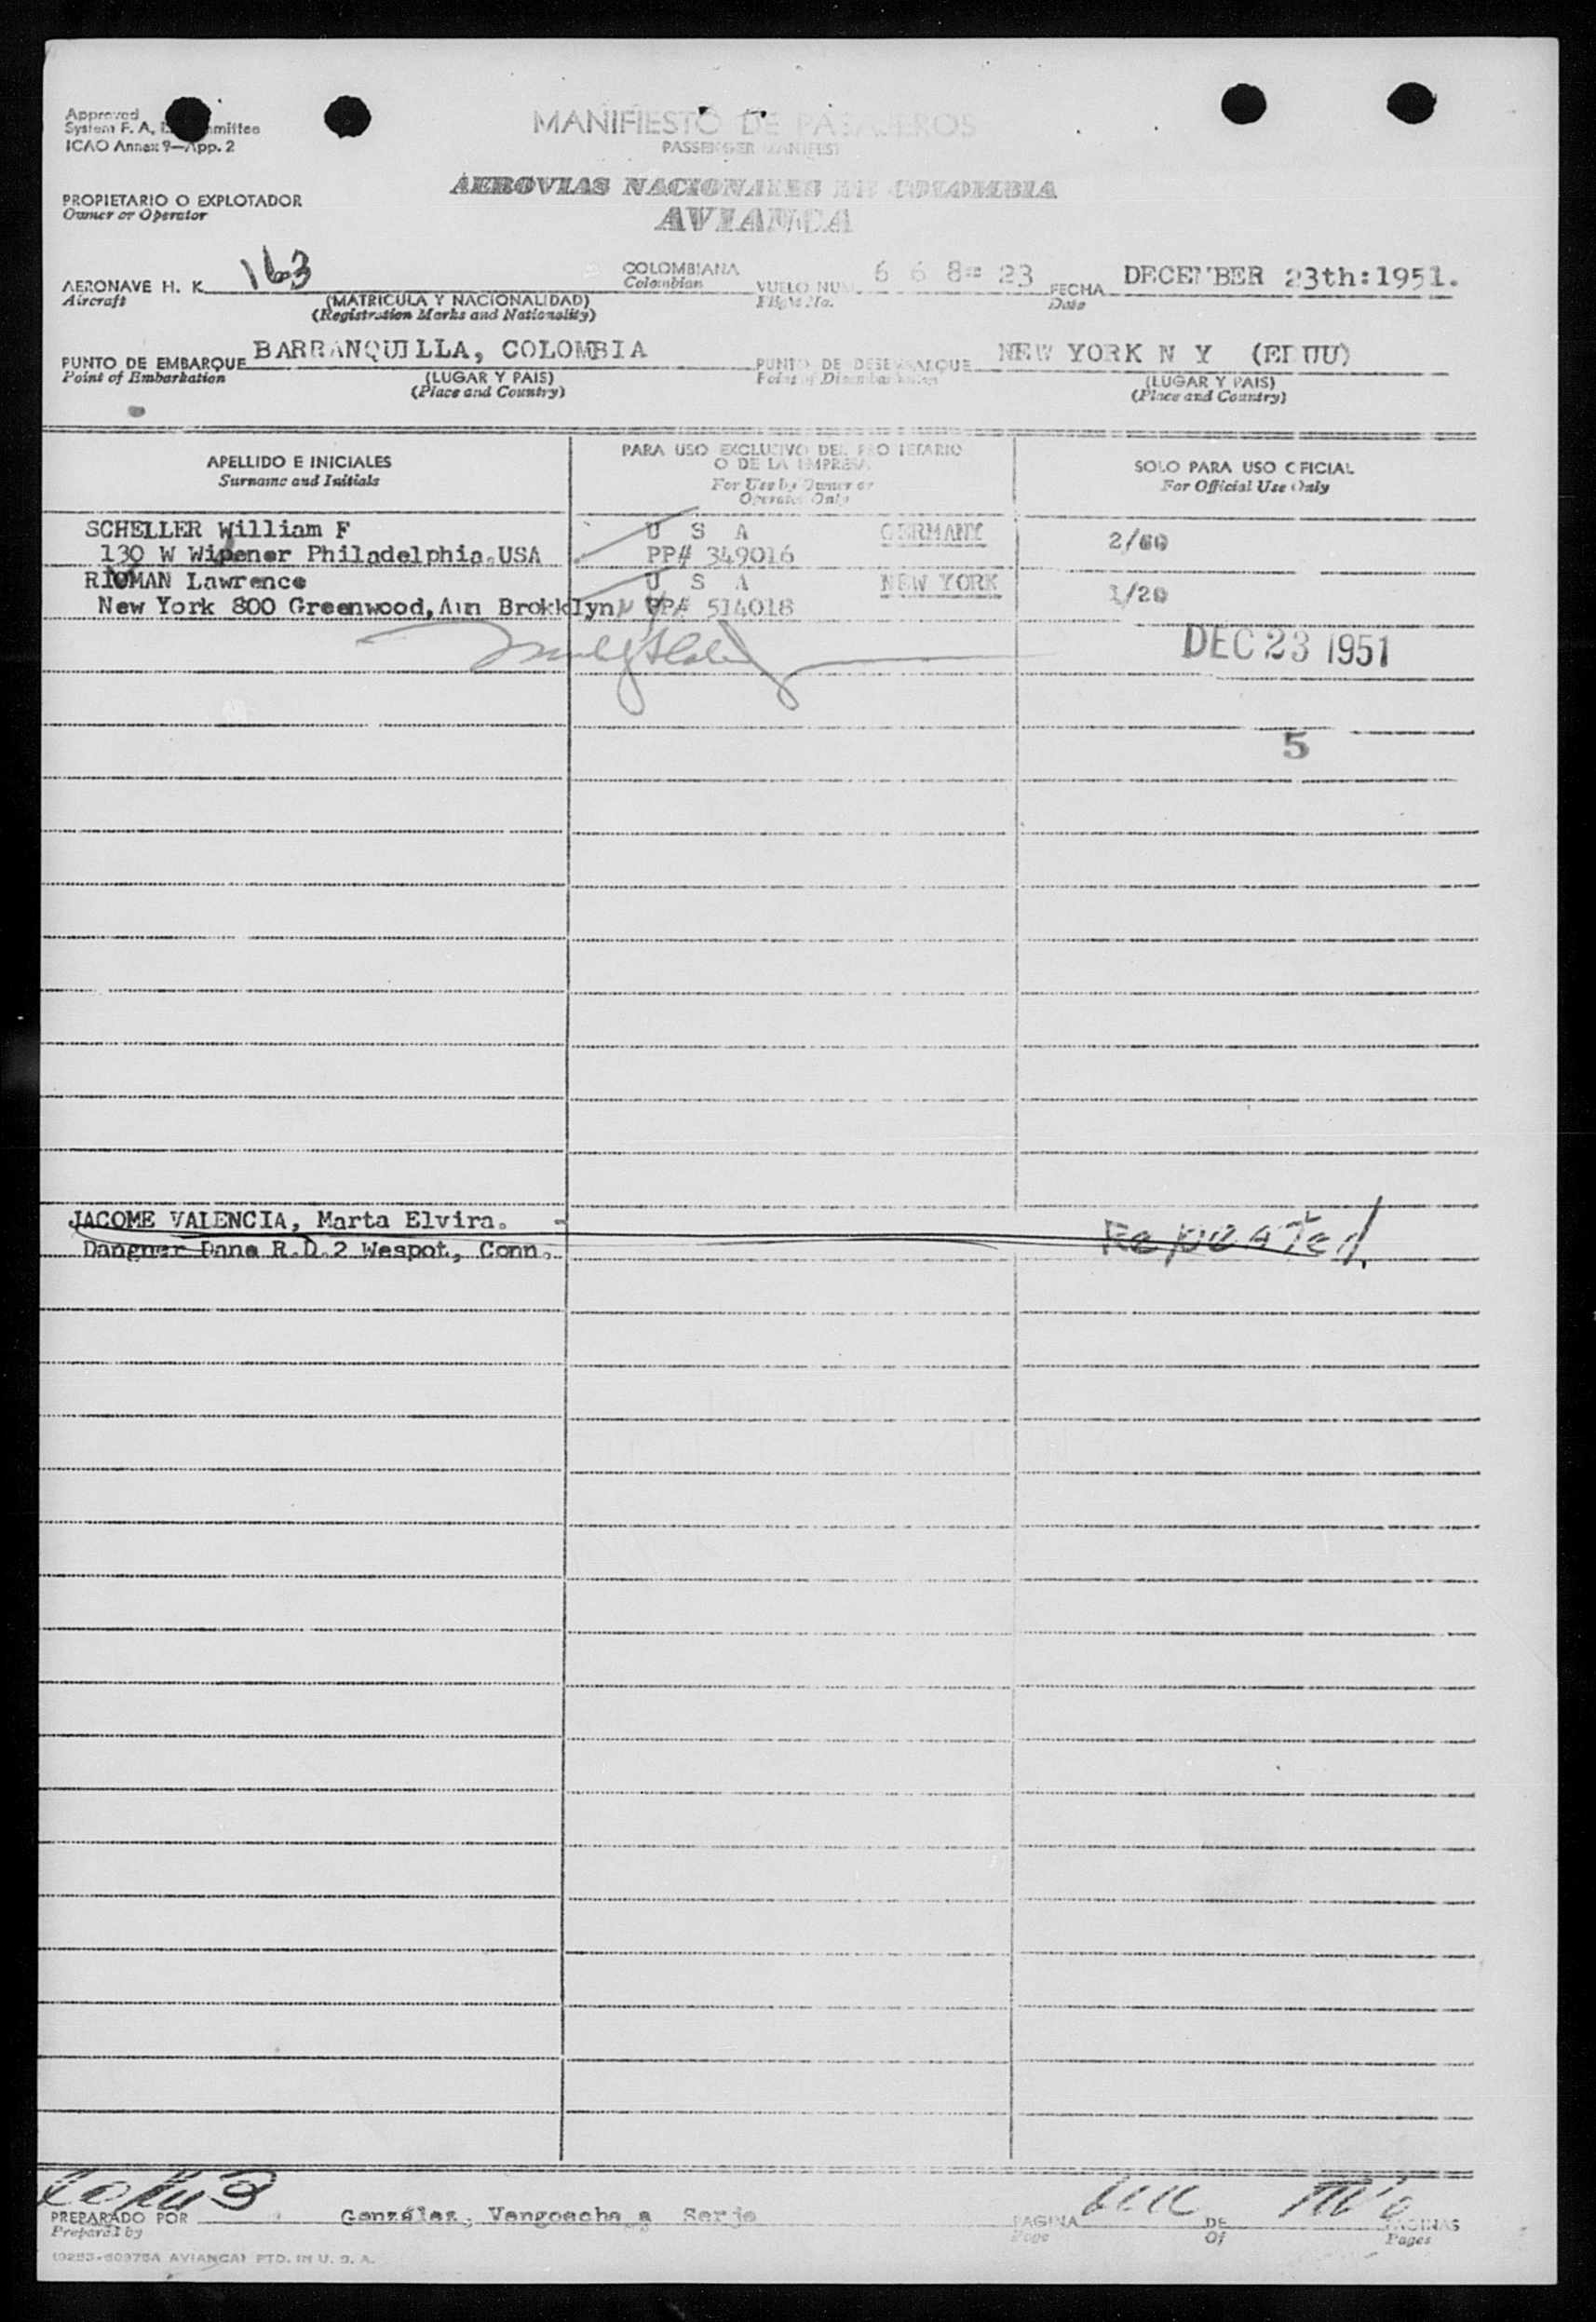 Approved
System F. A,
ICAO Annex 9—App. 2
MANIFIESTO DE PASAJEROS
PASSENGER MANIFEST
PROPIETARIO O EXPLOTADOR
Owner or Operator
AEROVIAS NACIONALES DE COLOMBIA
AVIANCA
AERONAVE H. K. 163
Aircraft
(MATRICULA Y NACIONALIDAD)
(Registration Marks and Nationality)
COLOMBIANA
Colombian
VUELO NUM. 6 6 8= 23
Flight No.
FECHA DECEMBER 23th:1951.
Date
PUNTO DE EMBARQUE BARRANQUILLA, COLOMBIA
Point of Embarkation
(LUGAR Y PAIS)
(Place and Country)
PUNTO DE DESEMBARQUE NEW YORK N Y (EEUU)
Point of Disembarkation
(LUGAR Y PAIS)
(Place and Country)
APELLIDO E INICIALES
Surname and Initials
PARA USO EXCLUSIVO DEL PROPIETARIO
O DE LA EMPRESA
For Use by Owner or
Operator Only
SOLO PARA USO OFICIAL
For Official Use Only
SCHELLER William F U S A GERMANY 2/60
130 W Wipener Philadelphia.USA PP# 349016
Lawrence U S A NEW YORK 1/20
New York 800 Greenwood, Brokklyn N Y PP# 514018
DEC 23 1951
5
JACOME VALENCIA, Marta Elvira.
Dangner Dana R.D.2 Wespot, Conn. Repeated
PREPARADO POR González, Vengoecha a Serje
Prepared by
PAGINA
Page
DE
Of
PAGINAS
Pages
(9283-60375A AVIANCA) PTD. IN U. S. A.